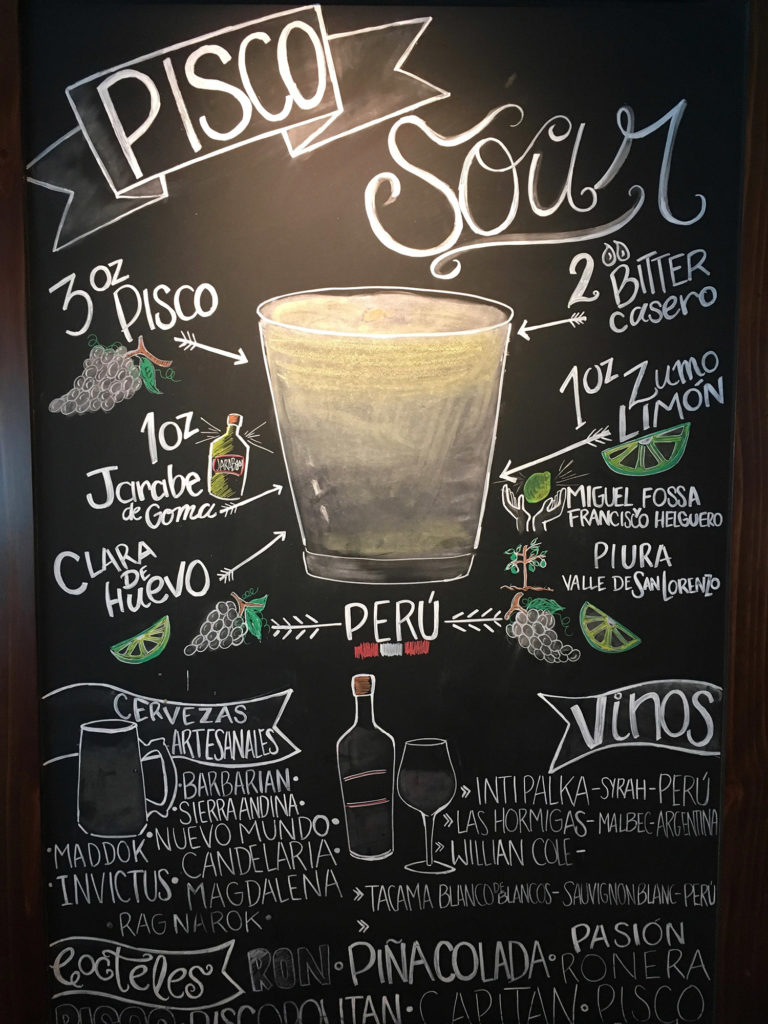 PISCO
Sour
3 oz PISCO
2 BITTER
casero
1 oz
Jarabe
de Goma
JARABE
1 oz Zumo
LIMÓN
CLARA
DE
HUEVO
MIGUEL FOSSA
FRANCISCO HELGUERO
PIURA
VALLE DE SAN LORENZO
PERÚ
CERVEZAS
ARTESANALES
·BARBARIAN·
SIERRA ANDINA·
NUEVO MUNDO·
·MADDOK
CANDELARIA·
·INVICTUS·
MAGDALENA
·RAGNAROK·
Vinos
» INTIPALKA-SYRAH-PERÚ
» LAS HORMIGAS-MALBEC-ARGENTINA
» WILLIAN COLE-
» TACAMA BLANCO DE BLANCOS-SAUVIGNON BLANC-PERÚ
»
Cocteles
RON·PIÑA COLADA·PASIÓN
RONERA
PISCO PISCOPOLITAN·CAPITAN·PISCO